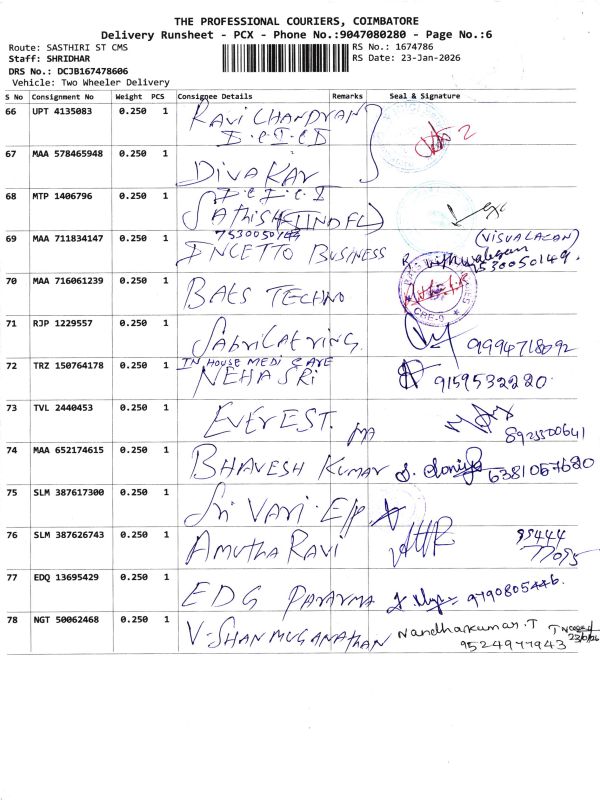 THE PROFESSIONAL COURIERS, COIMBATORE
Delivery Runsheet - PCX - Phone No.:9047080280 - Page No.:6
Route: SASTHIRI ST CMS
RS No.: 1674786
Staff: SHRIDHAR
RS Date: 23-Jan-2026
DRS No.: DCJB167478606
Vehicle: Two Wheeler Delivery
S No Consignment No Weight PCS Consignee Details Remarks Seal & Signature
66 UPT 4135083 0.250 1 RAVI CHANDRAN
D.C.I.C.D
2
67 MAA 578465948 0.250 1 DIVAKAR
68 MTP 1406796 0.250 1
SATHISH (IINDFL)
7530050149
69 MAA 711834147 0.250 1 INCETTO BUSINESS
(VISVALAGAN)
7530050149.
70 MAA 716061239 0.250 1 BAES TECHNO
71 RJP 1229557 0.250 1 SABRICATRING. 9994718092
72 TRZ 150764178 0.250 1 IN HOUSE MEDI CARE
NEHA SRI 9159532220.
73 TVL 2440453 0.250 1 EVEREST. 8925500641
74 MAA 652174615 0.250 1 BHAVESH KUMAR 6381067680
75 SLM 387617300 0.250 1 Sri VARI. E/P
76 SLM 387626743 0.250 1 AMUTHA RAVI 95444
77095
77 EDQ 13695429 0.250 1 EDG PARARMA 9790805446.
78 NGT 50062468 0.250 1 V-SHANMUGANATHAN Nandhakumar.T
9524977943